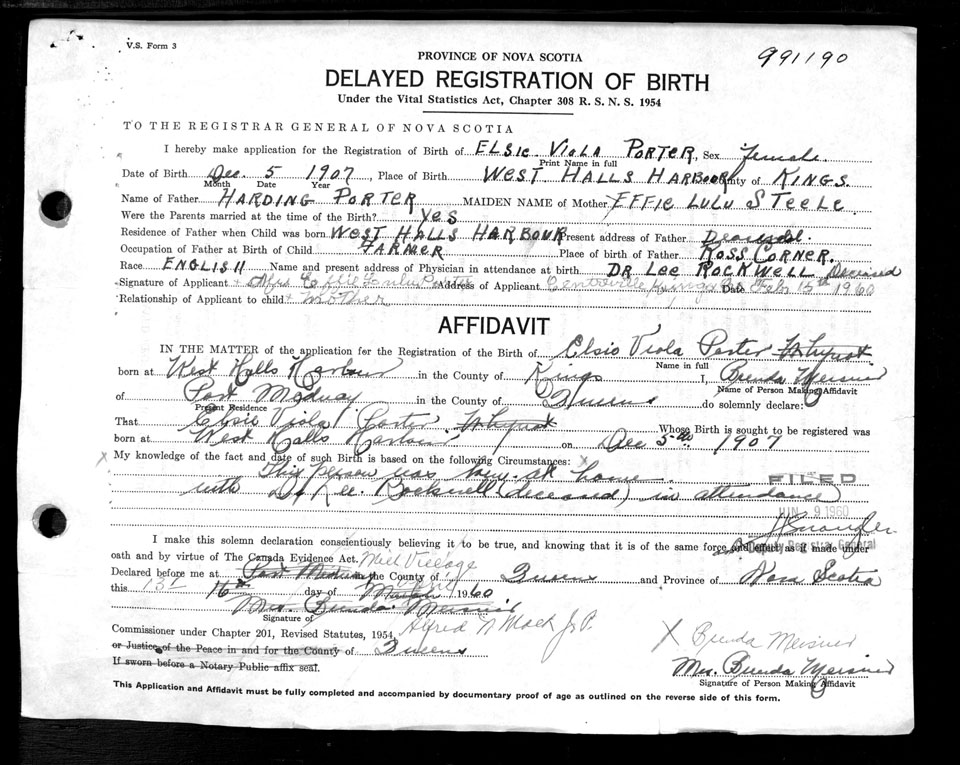 V.S. Form 3
991190
PROVINCE OF NOVA SCOTIA
DELAYED REGISTRATION OF BIRTH
Under the Vital Statistics Act, Chapter 308 R. S. N. S. 1954
TO THE REGISTRAR GENERAL OF NOVA SCOTIA
I hereby make application for the Registration of Birth of ELSIE VIOLA PORTER, Sex female
Print Name in full
Date of Birth Dec. 5 1907, Place of Birth WEST HALLS HARBOUR County of KINGS.
Month Date Year
Name of Father HARDING PORTER MAIDEN NAME of Mother EFFIE LULU STEELE
Were the Parents married at the time of the Birth? yes
Residence of Father when Child was born WEST HALLS HARBOUR Present address of Father
Occupation of Father at Birth of Child FARMER Place of birth of Father ROSS CORNER.
Race ENGLISH Name and present address of Physician in attendance at birth DR LEE ROCKWELL Deceased
Signature of Applicant Mrs Effie Lulu Porter Address of Applicant Centreville Kings Co Date Feb 15th 1960
Relationship of Applicant to child mother
AFFIDAVIT
IN THE MATTER of the application for the Registration of the Birth of Elsie Viola Porter
Name in full
born at West Halls Harbour in the County of Kings I, Brenda Meisner
Name of Person Making Affidavit
of Port Medway in the County of Queens do solemnly declare:
Present Residence
That Elsie Viola Porter Whose Birth is sought to be registered was
born at West Halls Harbour on Dec 5th 1907
X My knowledge of the fact and date of such Birth is based on the following Circumstances: X
This person was born at home
with Dr Lee Rockwell (deceased) in attendance
FILED
JUN 9 1960
Deputy Registrar General
I make this solemn declaration conscientiously believing it to be true, and knowing that it is of the same force and effect as if made under
oath and by virtue of The Canada Evidence Act. Mill Village
Declared before me at Port Medway in the County of Queens and Province of Nova Scotia
this 13th 16th day of March 1960
Mrs. Brenda Meisner
Signature of
Alfred N Mack J.P.
Commissioner under Chapter 201, Revised Statutes, 1954,
or Justice of the Peace in and for the County of Queens
If sworn before a Notary Public affix seal.
X Brenda Meisner
Mrs. Brenda Meisner
Signature of Person Making Affidavit
This Application and Affidavit must be fully completed and accompanied by documentary proof of age as outlined on the reverse side of this form.